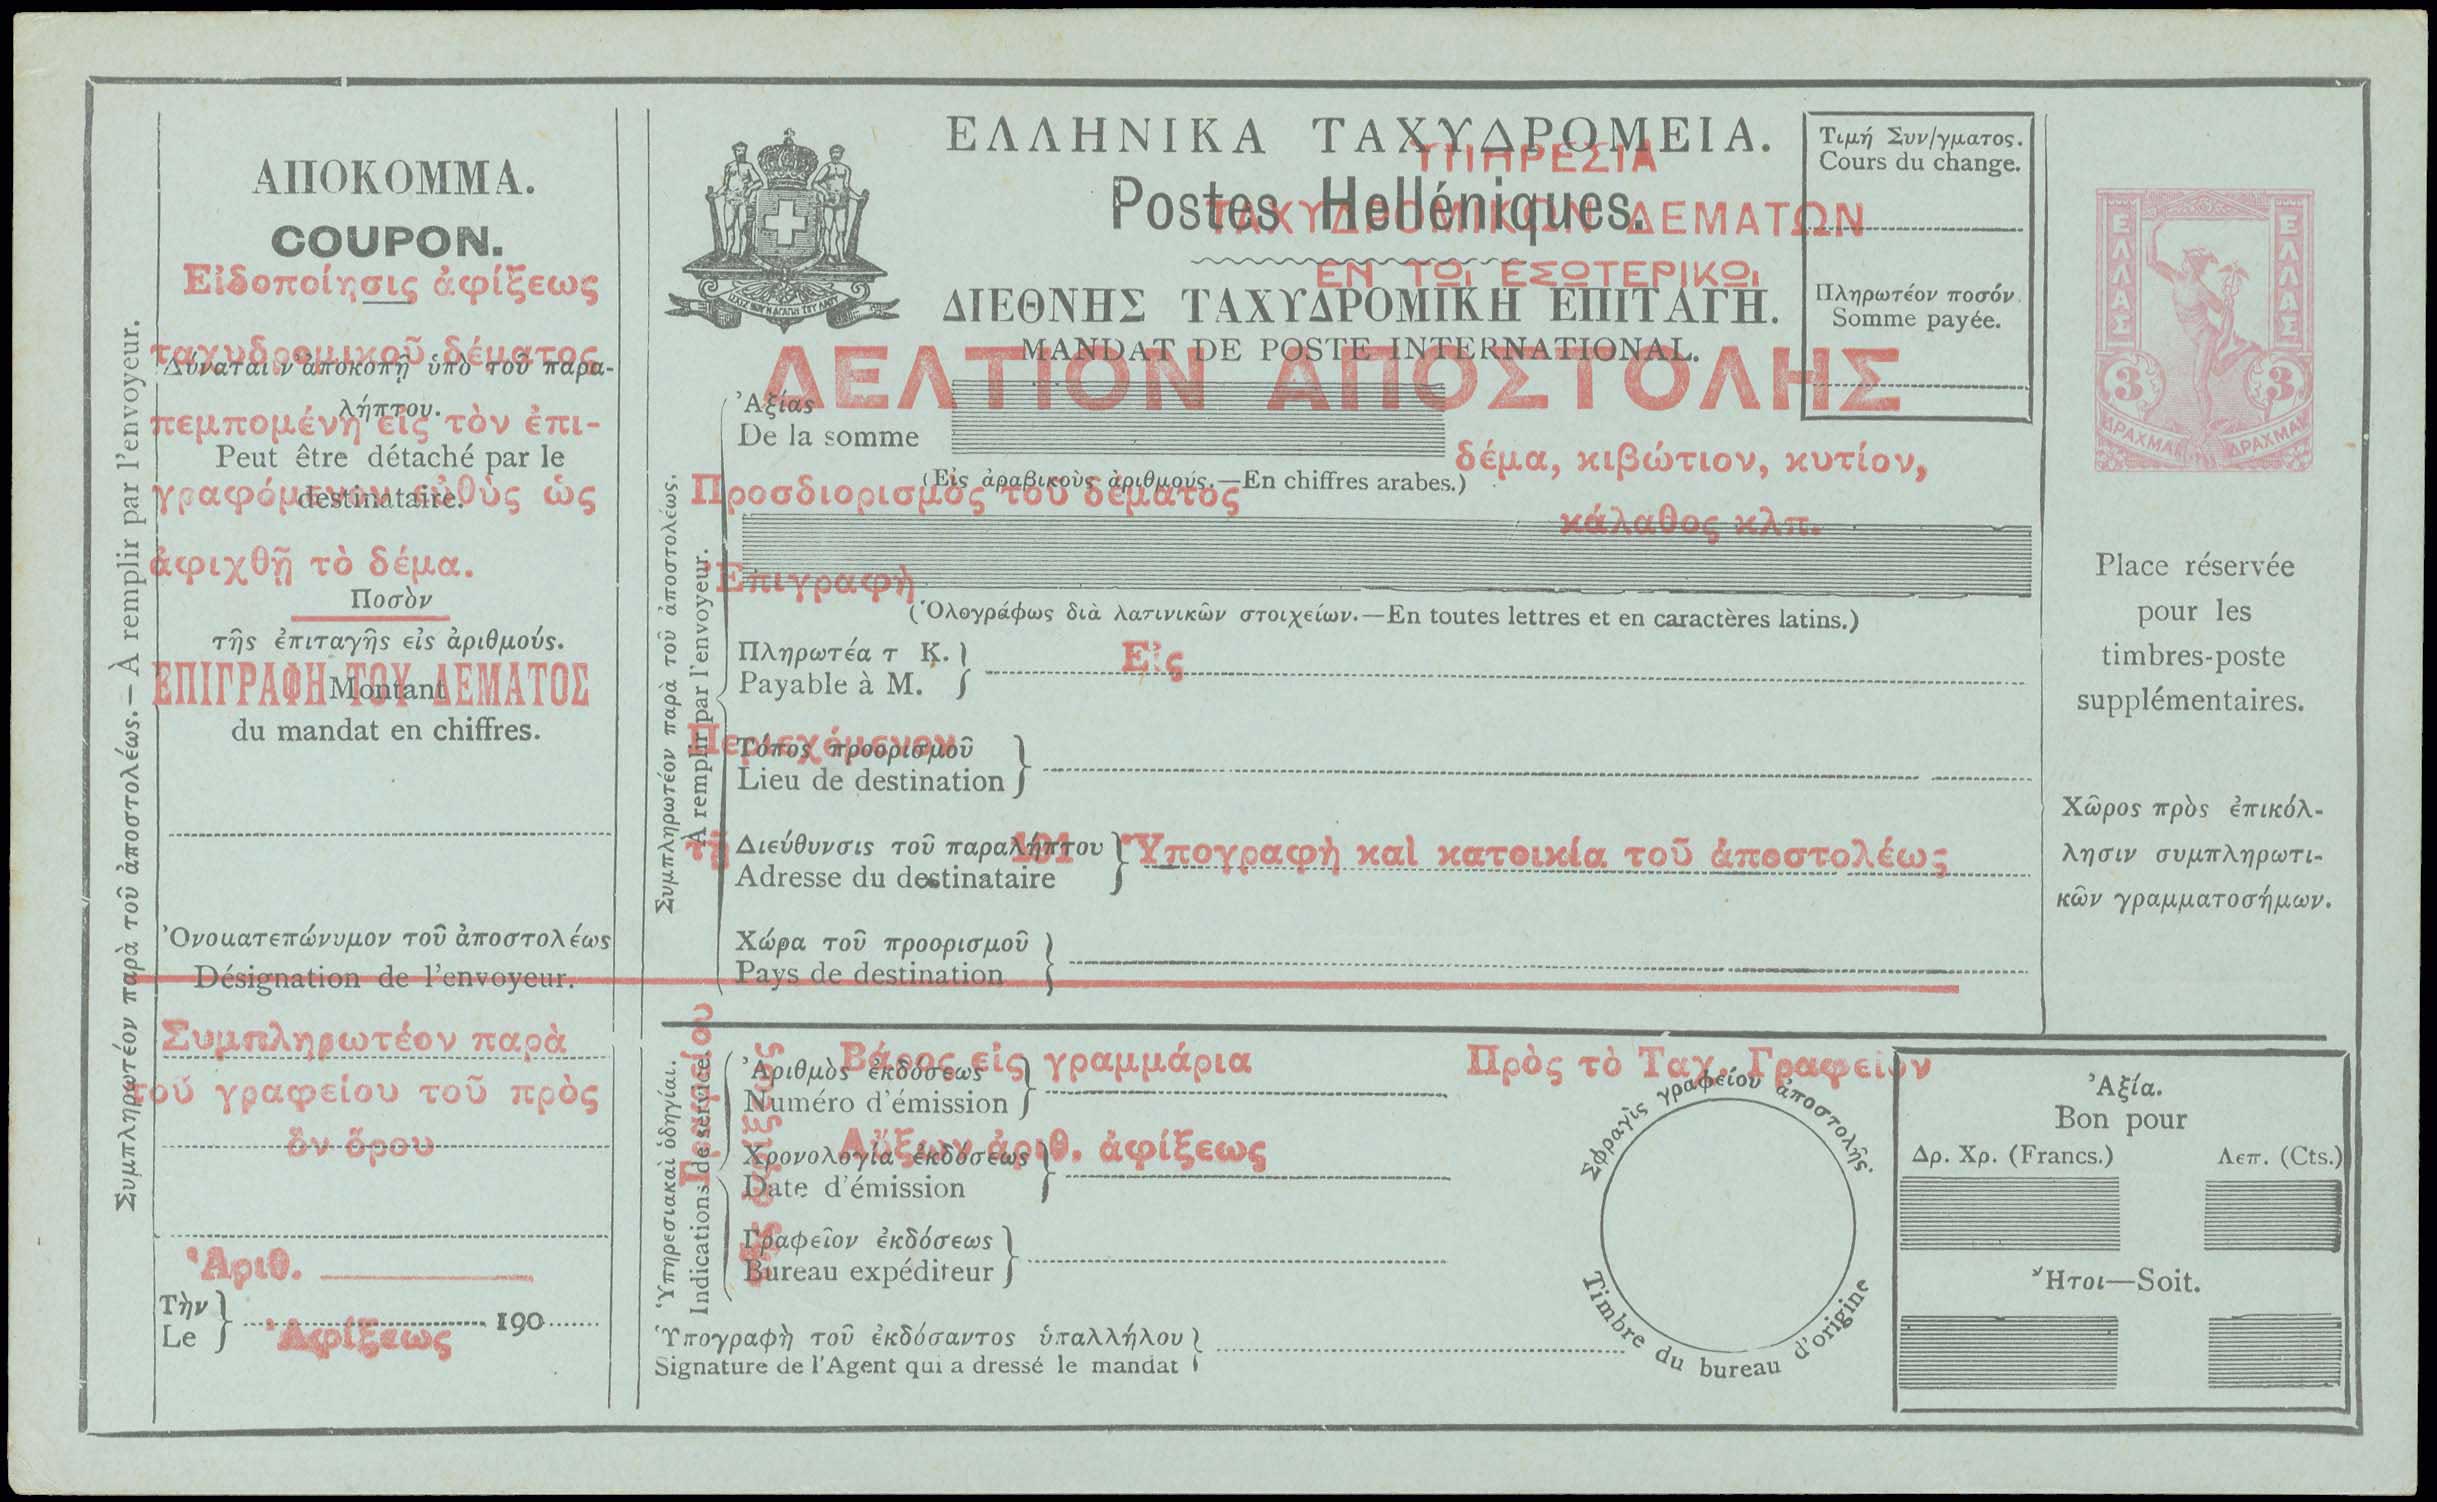 ΑΠΟΚΟΜΜΑ.
COUPON.
Εἰδοποίησις ἀφίξεως
ταχυδρομικοῦ δέματος
Δύναται ν' ἀποκοπῇ ὑπὸ τοῦ παρα-
λήπτου.
πεμπομένη εἰς τὸν ἐπι-
Peut être détaché par le
γραφόμενον εὐθὺς ὡς
destinataire.
ἀφιχθῇ τὸ δέμα.
Ποσὸν
τῆς ἐπιταγῆς εἰς ἀριθμούς.
ΕΠΙΓΡΑΦΗ ΤΟΥ ΔΕΜΑΤΟΣ
Montant
du mandat en chiffres.
Ὀνοματεπώνυμον τοῦ ἀποστολέως
Désignation de l'envoyeur.
Συμπληρωτέον παρὰ
τοῦ γραφείου τοῦ πρὸς
ὃν ὅρου
Ἀριθ.
Τὴν
Le
190
Ἀφίξεως
Συμπληρωτέον παρὰ τοῦ ἀποστολέως.—À remplir par l'envoyeur.
ΕΛΛΗΝΙΚΑ ΤΑΧΥΔΡΟΜΕΙΑ.
ΥΠΗΡΕΣΙΑ
Postes Helléniques.
ΤΑΧΥΔΡΟΜΙΚΩΝ ΔΕΜΑΤΩΝ
ΕΝ ΤΩι ΕΣΩΤΕΡΙΚΩι
ΔΙΕΘΝΗΣ ΤΑΧΥΔΡΟΜΙΚΗ ΕΠΙΤΑΓΗ.
MANDAT DE POSTE INTERNATIONAL.
ΔΕΛΤΙΟΝ ΑΠΟΣΤΟΛΗΣ
Ἀξίας
De la somme
δέμα, κιβώτιον, κυτίον,
(Εἰς ἀραβικοὺς ἀριθμούς.—En chiffres arabes.)
Προσδιορισμὸς τοῦ δέματος
κάλαθος κλπ.
Ἐπιγραφὴ
(Ὁλογράφως διὰ λατινικῶν στοιχείων.—En toutes lettres et en caractères latins.)
Πληρωτέα τ Κ.
Εἰς
Payable à M.
Περιεχόμενον
Τόπος προορισμοῦ
Lieu de destination
τῇ
191
Ὑπογραφὴ καὶ κατοικία τοῦ ἀποστολέως
Διεύθυνσις τοῦ παραλήπτου
Adresse du destinataire
Χώρα τοῦ προορισμοῦ
Pays de destination
Συμπληρωτέον παρὰ τοῦ ἀποστολέως.
À remplir par l'envoyeur.
Τιμή Συν/γματος.
Cours du change.
Πληρωτέον ποσόν.
Somme payée.
ΕΛΛΑΣ
ΕΛΛΑΣ
3
3
ΔΡΑΧΜΑΙ
ΔΡΑΧΜΑΙ
Place réservée
pour les
timbres-poste
supplémentaires.
Χῶρος πρὸς ἐπικόλ-
λησιν συμπληρωτι-
κῶν γραμματοσήμων.
Βάρος εἰς γραμμάρια
Πρὸς τὸ Ταχ. Γραφεῖον
Ἀριθμὸς ἐκδόσεως
Numéro d'émission
Αὔξων ἀριθ. ἀφίξεως
Χρονολογία ἐκδόσεως
Date d'émission
Γραφεῖον ἐκδόσεως
Bureau expéditeur
Ὑπογραφὴ τοῦ ἐκδόσαντος ὑπαλλήλου
Signature de l'Agent qui a dressé le mandat
Ὑπηρεσιακαὶ ὁδηγίαι.
Indications de service
Σφραγὶς γραφείου ἀποστολῆς.
Timbre du bureau d'origine
Ἀξία.
Bon pour
Δρ. Χρ. (Francs.)
Λεπ. (Cts.)
Ἤτοι—Soit.